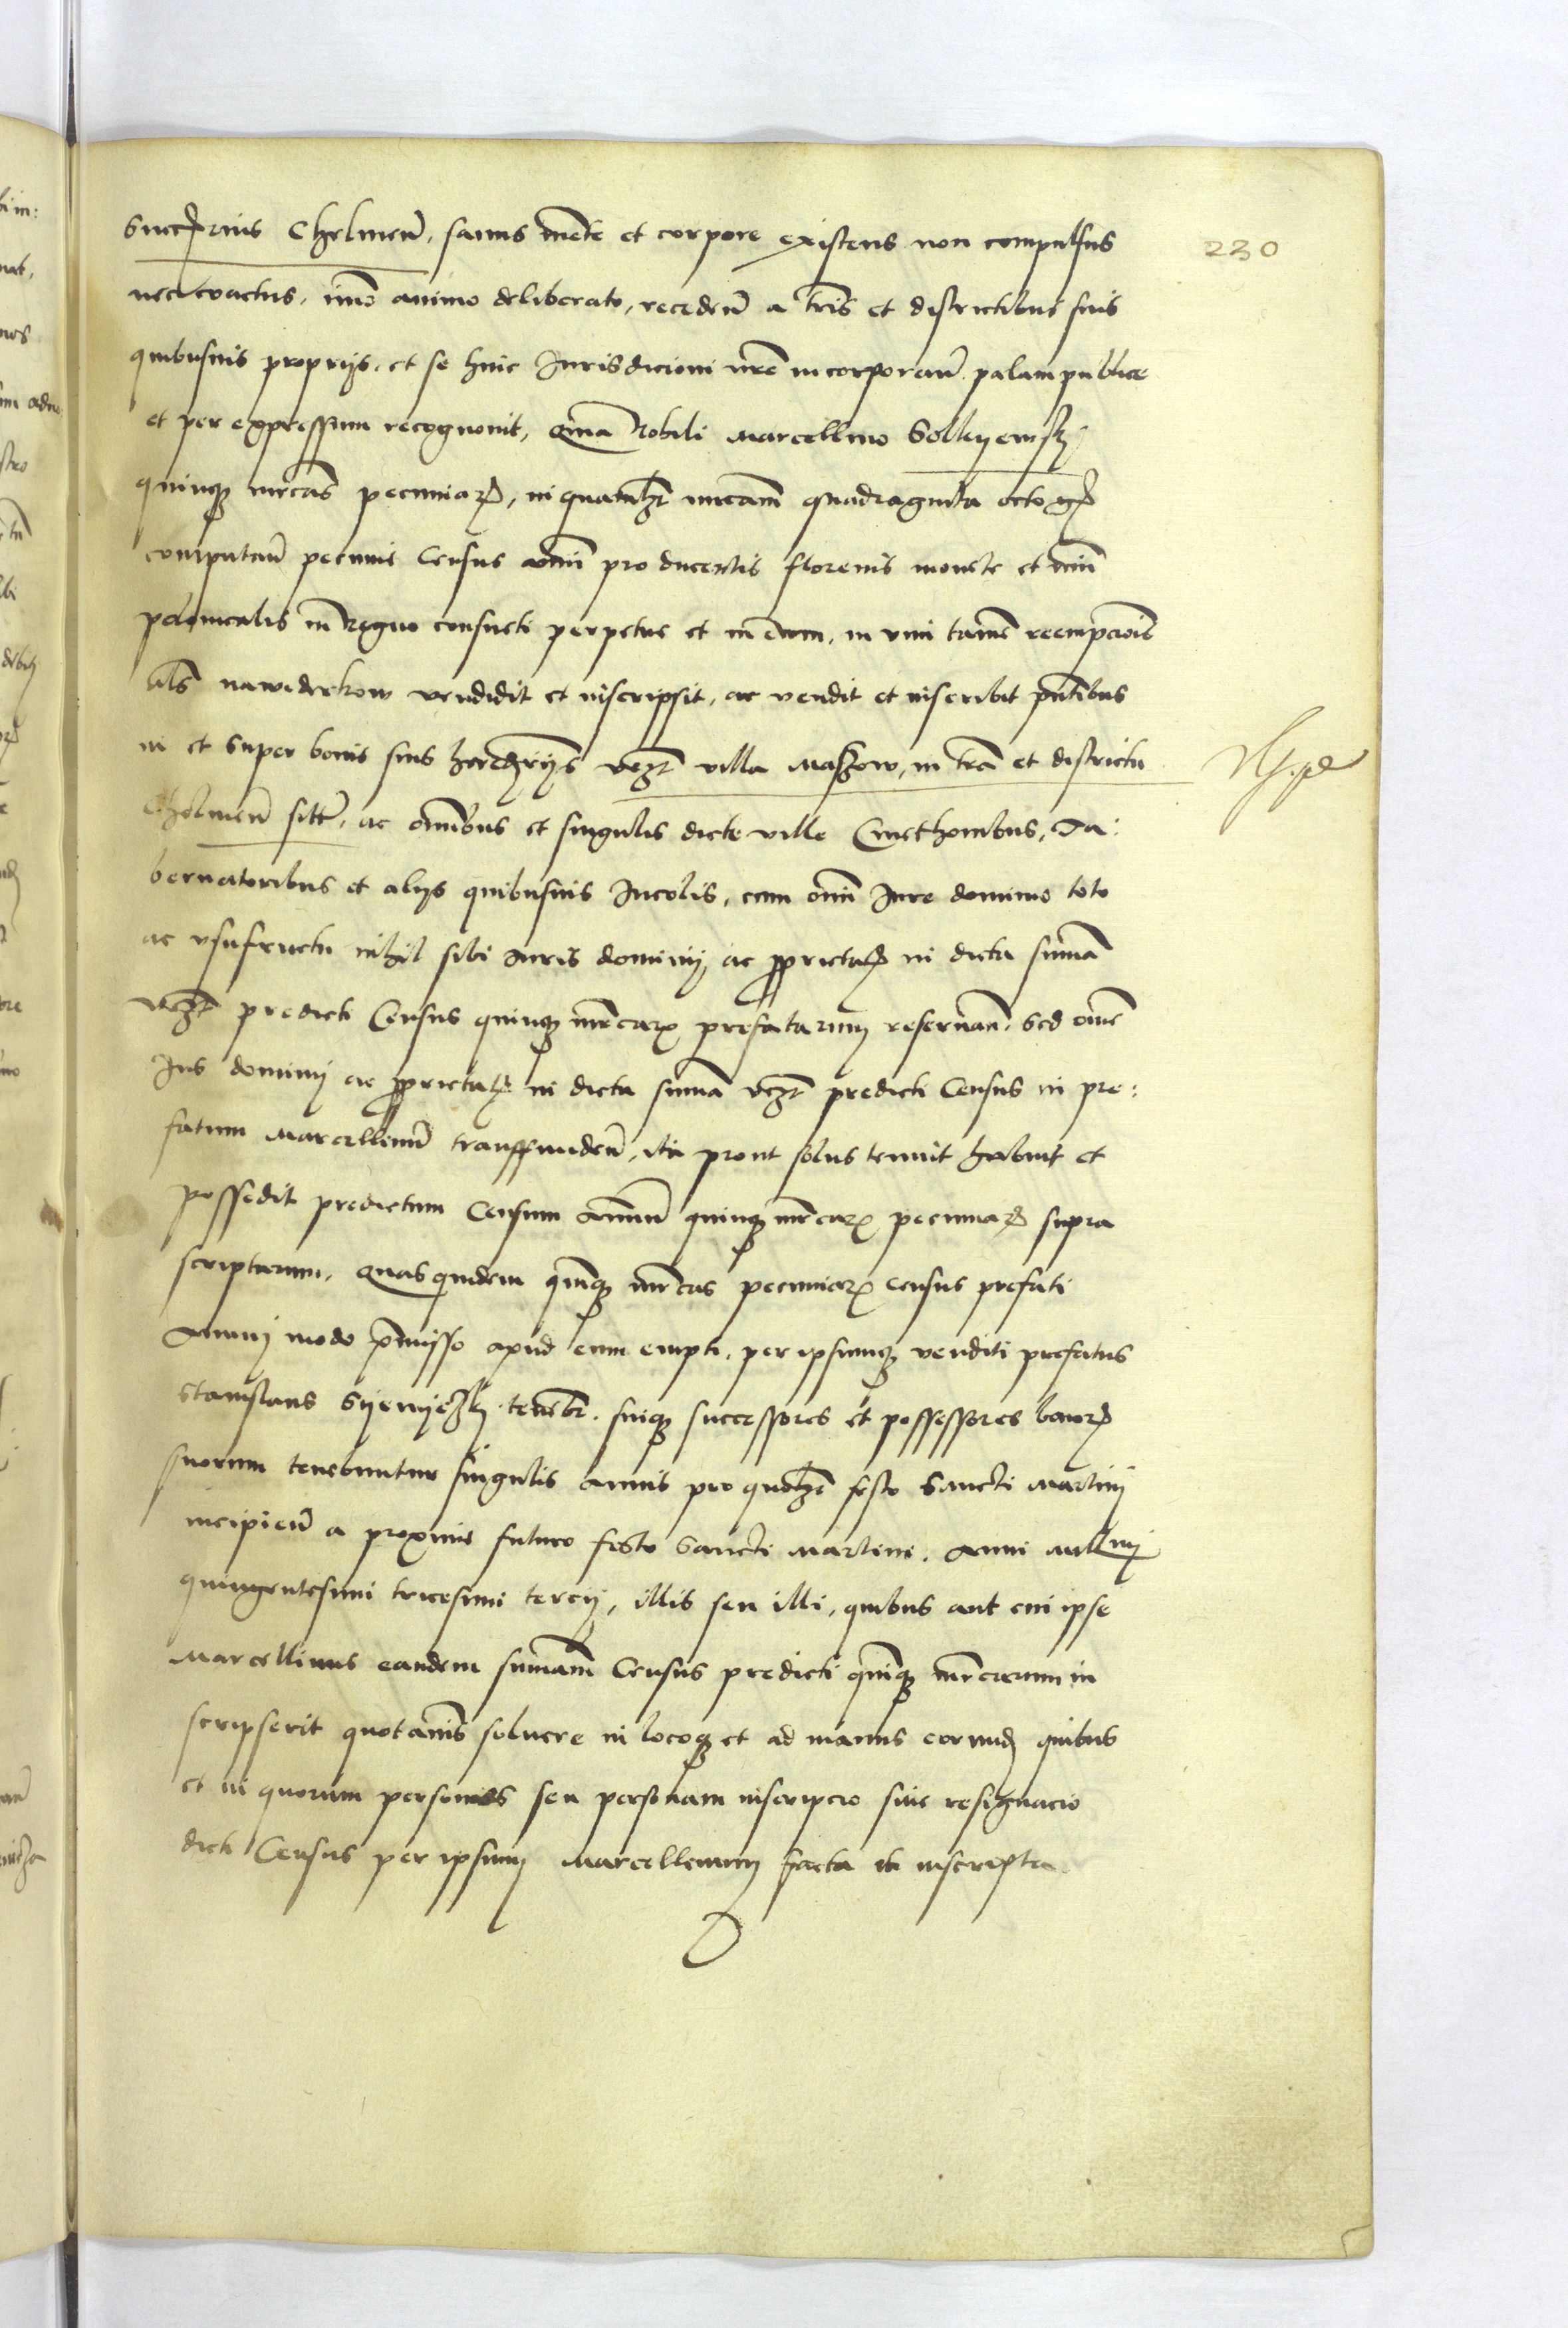 Succamerarius Chelmen̄, sanus mēte et corpore existens non compulsus
nec coactus, imo animo deliberato, recedeñ a terris et districtibus suis
quibusuis proprijs, et se huic Jurisdicioni nre incorporañ palam publice
et per expressum recognouit, Quia Nobili Marcellino
quinque mrcas pecuniarꝫ, in quamlꝫt mrcam quadraginta octo gꝫ
computañ pecunie Census annui pro ducentis florenis monete et nūi
polonicalis in Regno consueti perpetue et in eum, in vim tamē reempcionis
als nawiderkow vendidit et inscripsit, ac vendit et inscribit pñtibus
in et super bonis suis hereditarijs vꝫt villa Maszow, in tra et districtu
Chelmeñ sitt, ac omnibus et singulis dicte ville Cmethonibus, Ta:
bernatoribus et alijs quibusuis Incolis, cum omni Jure dominio toto
ac vsufructu nihil sibi Juris dominij ac proprietatꝫ in dicta summa
vꝫt predicti Census quinqꝫ mrcarꝫ prefatarum reseruañ, sed omne
Jus dominij ac proprietatꝫ in dicta summa vꝫt predicti Census in pre:
fatum Marcellinū transfundeñ, ita prout solus tenuit habuit et
possedit predictum Censum Annuū quinqꝫ mrcarꝫ pecuniarꝫ supra
scriptarum, Quas quidem quinqꝫ mrcas pecuniarꝫ census prefati
Annuj modo p̄misso apud eum empti, per ipsumqꝫ venditi prefatus
Stanislaus tenebr, suiqꝫ successores et possessores bonorꝫ
suorum tenebuntur singulis Annis pro quolꝫt festo Sancti Martini
incipieñ a proxime futuro festo Sancti Martini, Anni Millmj
quingentesimi tricesimi tercij, illis seu illi, quibus aut cui ipse
Marcellinus eandem summam Census predicti quinqꝫ mrcarum in
scripserit quotannis soluere in locoqꝫ et ad manus eorundꝫ quibus
et in quorum personas seu personam inscripcio siue resignacio
dicti Census per ipsum Marcellinum facta et inscripta
230